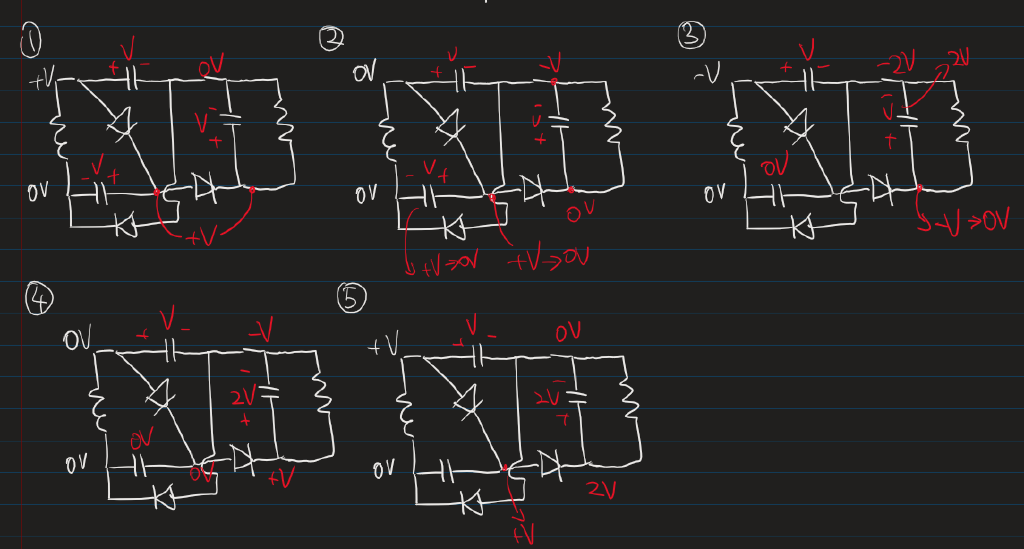 ① ② ③
V
+ -
+V
0V
V
-
+
-V+
0V
+V
V
+ -
0V
-V
V
-
+
- V +
0V
0V
+V→0V
+V→0V
V
+ -
-V
-2V
2V
V
-
+
0V
0V
-V→0V
④ ⑤
V
+ -
0V
-V
-
2V
+
0V
0V
0V
+V
V
+ -
+V
0V
-
2V
+
0V
2V
+V